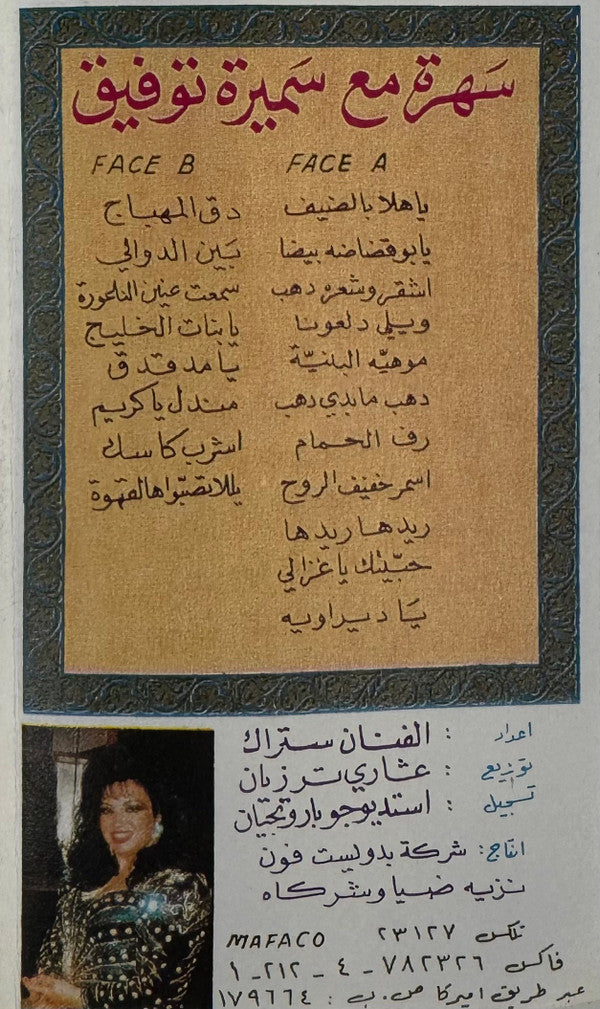 سهرة مع سميرة توفيق
FACE A
ياهلا بالضيف
يابو قضاضه بيضا
اشقر وشعره دهب
ويلي دلعونا
موهيّه البلنيّة
دهب مابدي دهب
رف الحمام
اسمر خفيف الروح
ريدها ريدها
حبّيتك يا غزالي
يا ديراويه
FACE B
دق المهباج
بين الدوالي
سمعت عنين الناعورة
يا بنات الخليج
يا مدقدق
مندل يا كريم
اشرب كاسك
يللا تصبّوا هالقهوة
اعداد : الفنان ستراك
توزيع : غاري ترزيان
تسجيل : استديو جو باروتجيان
انتاج : شركة بدوليست فون
نزيه ضيا وشركاه
تلكس ٢٣١٢٧ MAFACO
فاكس ٧٨٢٣٢٦ - ٤ - ٢١٢ - ١
عبر طريق اميركا ص.ب : ١٧٩٦٦٤